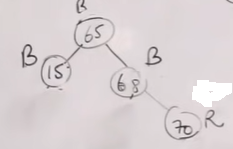 65
B
15
B
68
70 R